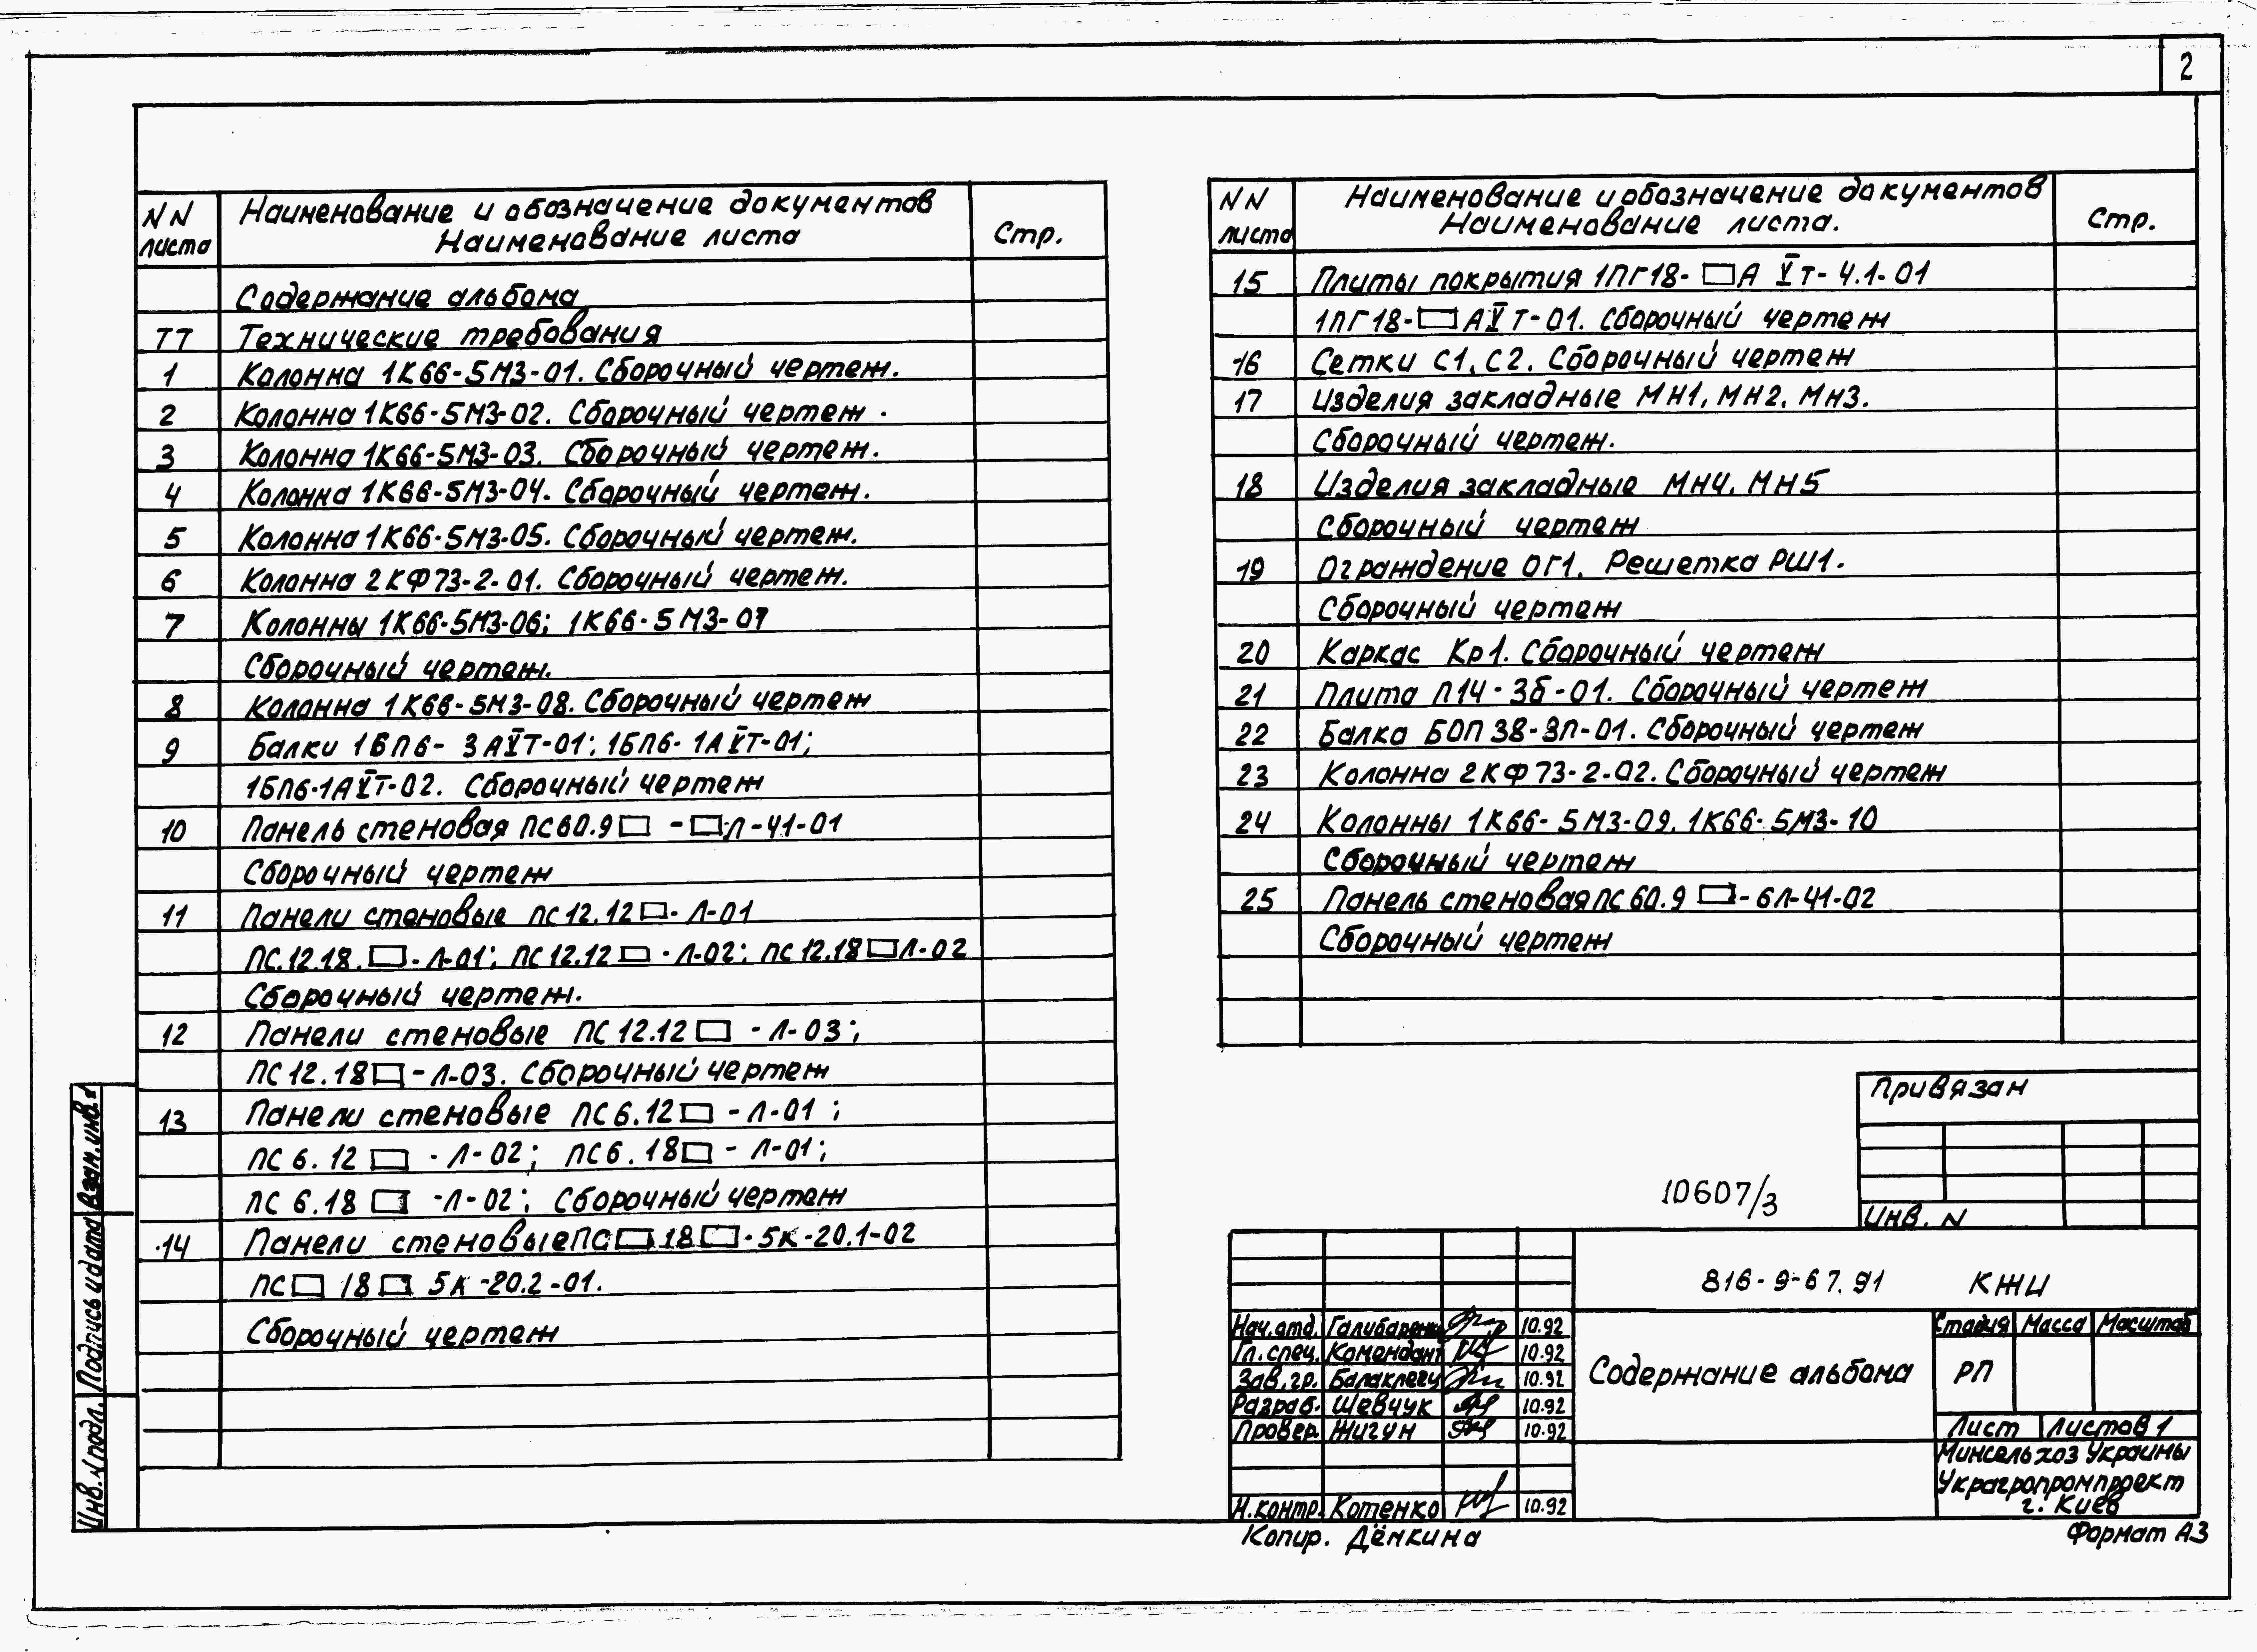 2
NN листа Наименование и обозначение документов Наименование листа Стр.
Содержание альбома
ТТ Технические требования
1 Колонна 1К66-5М3-01. Сборочный чертеж.
2 Колонна 1К66-5М3-02. Сборочный чертеж.
3 Колонна 1К66-5М3-03. Сборочный чертеж.
4 Колонна 1К66-5М3-04. Сборочный чертеж.
5 Колонна 1К66-5М3-05. Сборочный чертеж.
6 Колонна 2КФ73-2-01. Сборочный чертеж.
7 Колонны 1К66-5М3-06; 1К66-5М3-07
Сборочный чертеж.
8 Колонна 1К66-5М3-08. Сборочный чертеж
9 Балки 1БП6-3АVТ-01; 1БП6-1АVТ-01;
1БП6-1АVТ-02. Сборочный чертеж
10 Панель стеновая ПС60.9□ -□Л-41-01
Сборочный чертеж
11 Панели стеновые ПС12.12□-Л-01
ПС.12.18.□-Л-01; ПС12.12□-Л-02; ПС12.18□Л-02
Сборочный чертеж.
12 Панели стеновые ПС12.12□-Л-03;
ПС12.18□-Л-03. Сборочный чертеж
13 Панели стеновые ПС6.12□-Л-01;
ПС6.12□-Л-02; ПС6.18□-Л-01;
ПС6.18□-Л-02; Сборочный чертеж
14 Панели стеновые ПС□18□-5к-20.1-02
ПС□18□ 5к-20.2-01.
Сборочный чертеж
NN листа Наименование и обозначение документов Наименование листа. Стр.
15 Плиты покрытия 1ПГ18-□АVт-4.1-01
1ПГ18-□АVТ-01. Сборочный чертеж
16 Сетки С1, С2. Сборочный чертеж
17 Изделия закладные МН1, МН2, МН3.
Сборочный чертеж.
18 Изделия закладные МН4, МН5
Сборочный чертеж
19 Ограждение ОГ1. Решетка РШ1.
Сборочный чертеж
20 Каркас Кр1. Сборочный чертеж
21 Плита П14-3б-01. Сборочный чертеж
22 Балка БОП38-3П-01. Сборочный чертеж
23 Колонна 2КФ73-2-02. Сборочный чертеж
24 Колонны 1К66-5М3-09, 1К66-5М3-10
Сборочный чертеж
25 Панель стеновая ПС60.9□-6Л-41-02
Сборочный чертеж
Привязан
Инв. N
10607/3
816-9-67.91 КЖИ
Нач.отд. 10.92
Гл.спец. Комендант 10.92
Зав.гр. 10.92
Разраб. Шевчук 10.92
Провер. Жигун 10.92
Н.контр. Котенко 10.92
Содержание альбома
Стадия Масса Масштаб
РП
Лист Листов 1
Минсельхоз Украины
Украгропромпроект
г. Киев
Копир. Дёмкина
Формат А3
Инв. N подл. Подпись и дата Взам.инв.